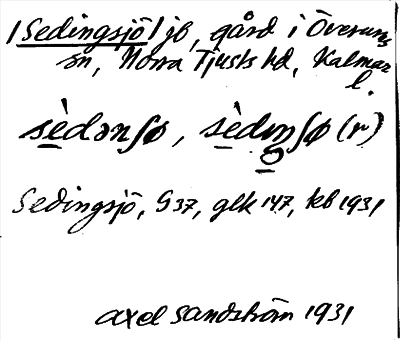 /Sedingsjö/ jb, gård i Överums
sn, Norra Tjusts hd, Kalmar
l.
sèdənʃø, sèdıŋʃø (r)
Sedingsjö, G 37, glk 147, kb 1931
Axel Sandström 1931